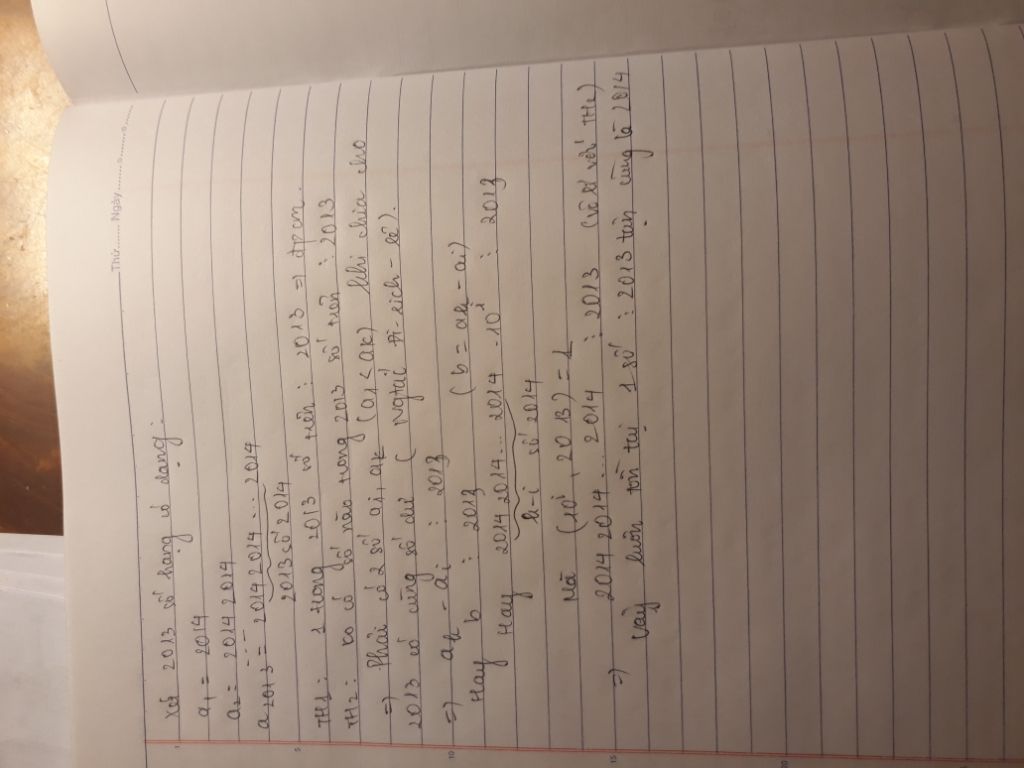 Thứ ........ Ngày ...............
Xét 2013 số hạng có dạng:
a1 = 2014
a2 = 2014 2014
a2013 = 2014 2014 ... 2014
2013 số 2014
TH1: 1 trong 2013 số trên ⋮ 2013 => đpcm.
TH2: ko có số nào trong 2013 số trên ⋮ 2013
=> Phải có 2 số ai, ak (ai < ak) khi chia cho
2013 có cùng số dư ( Nglí Đi-rich-lê).
=> ak - ai ⋮ 2013
Hay b ⋮ 2013 (b = ak - ai)
Hay 2014 2014 ... 2014 . 10^i ⋮ 2013
k-i số 2014
Mà (10^i, 2013) = 1
=> 2014 2014 ... 2014 ⋮ 2013 (vô lí với TH2)
Vậy luôn tồn tại 1 số ⋮ 2013 tận cùng là 2014